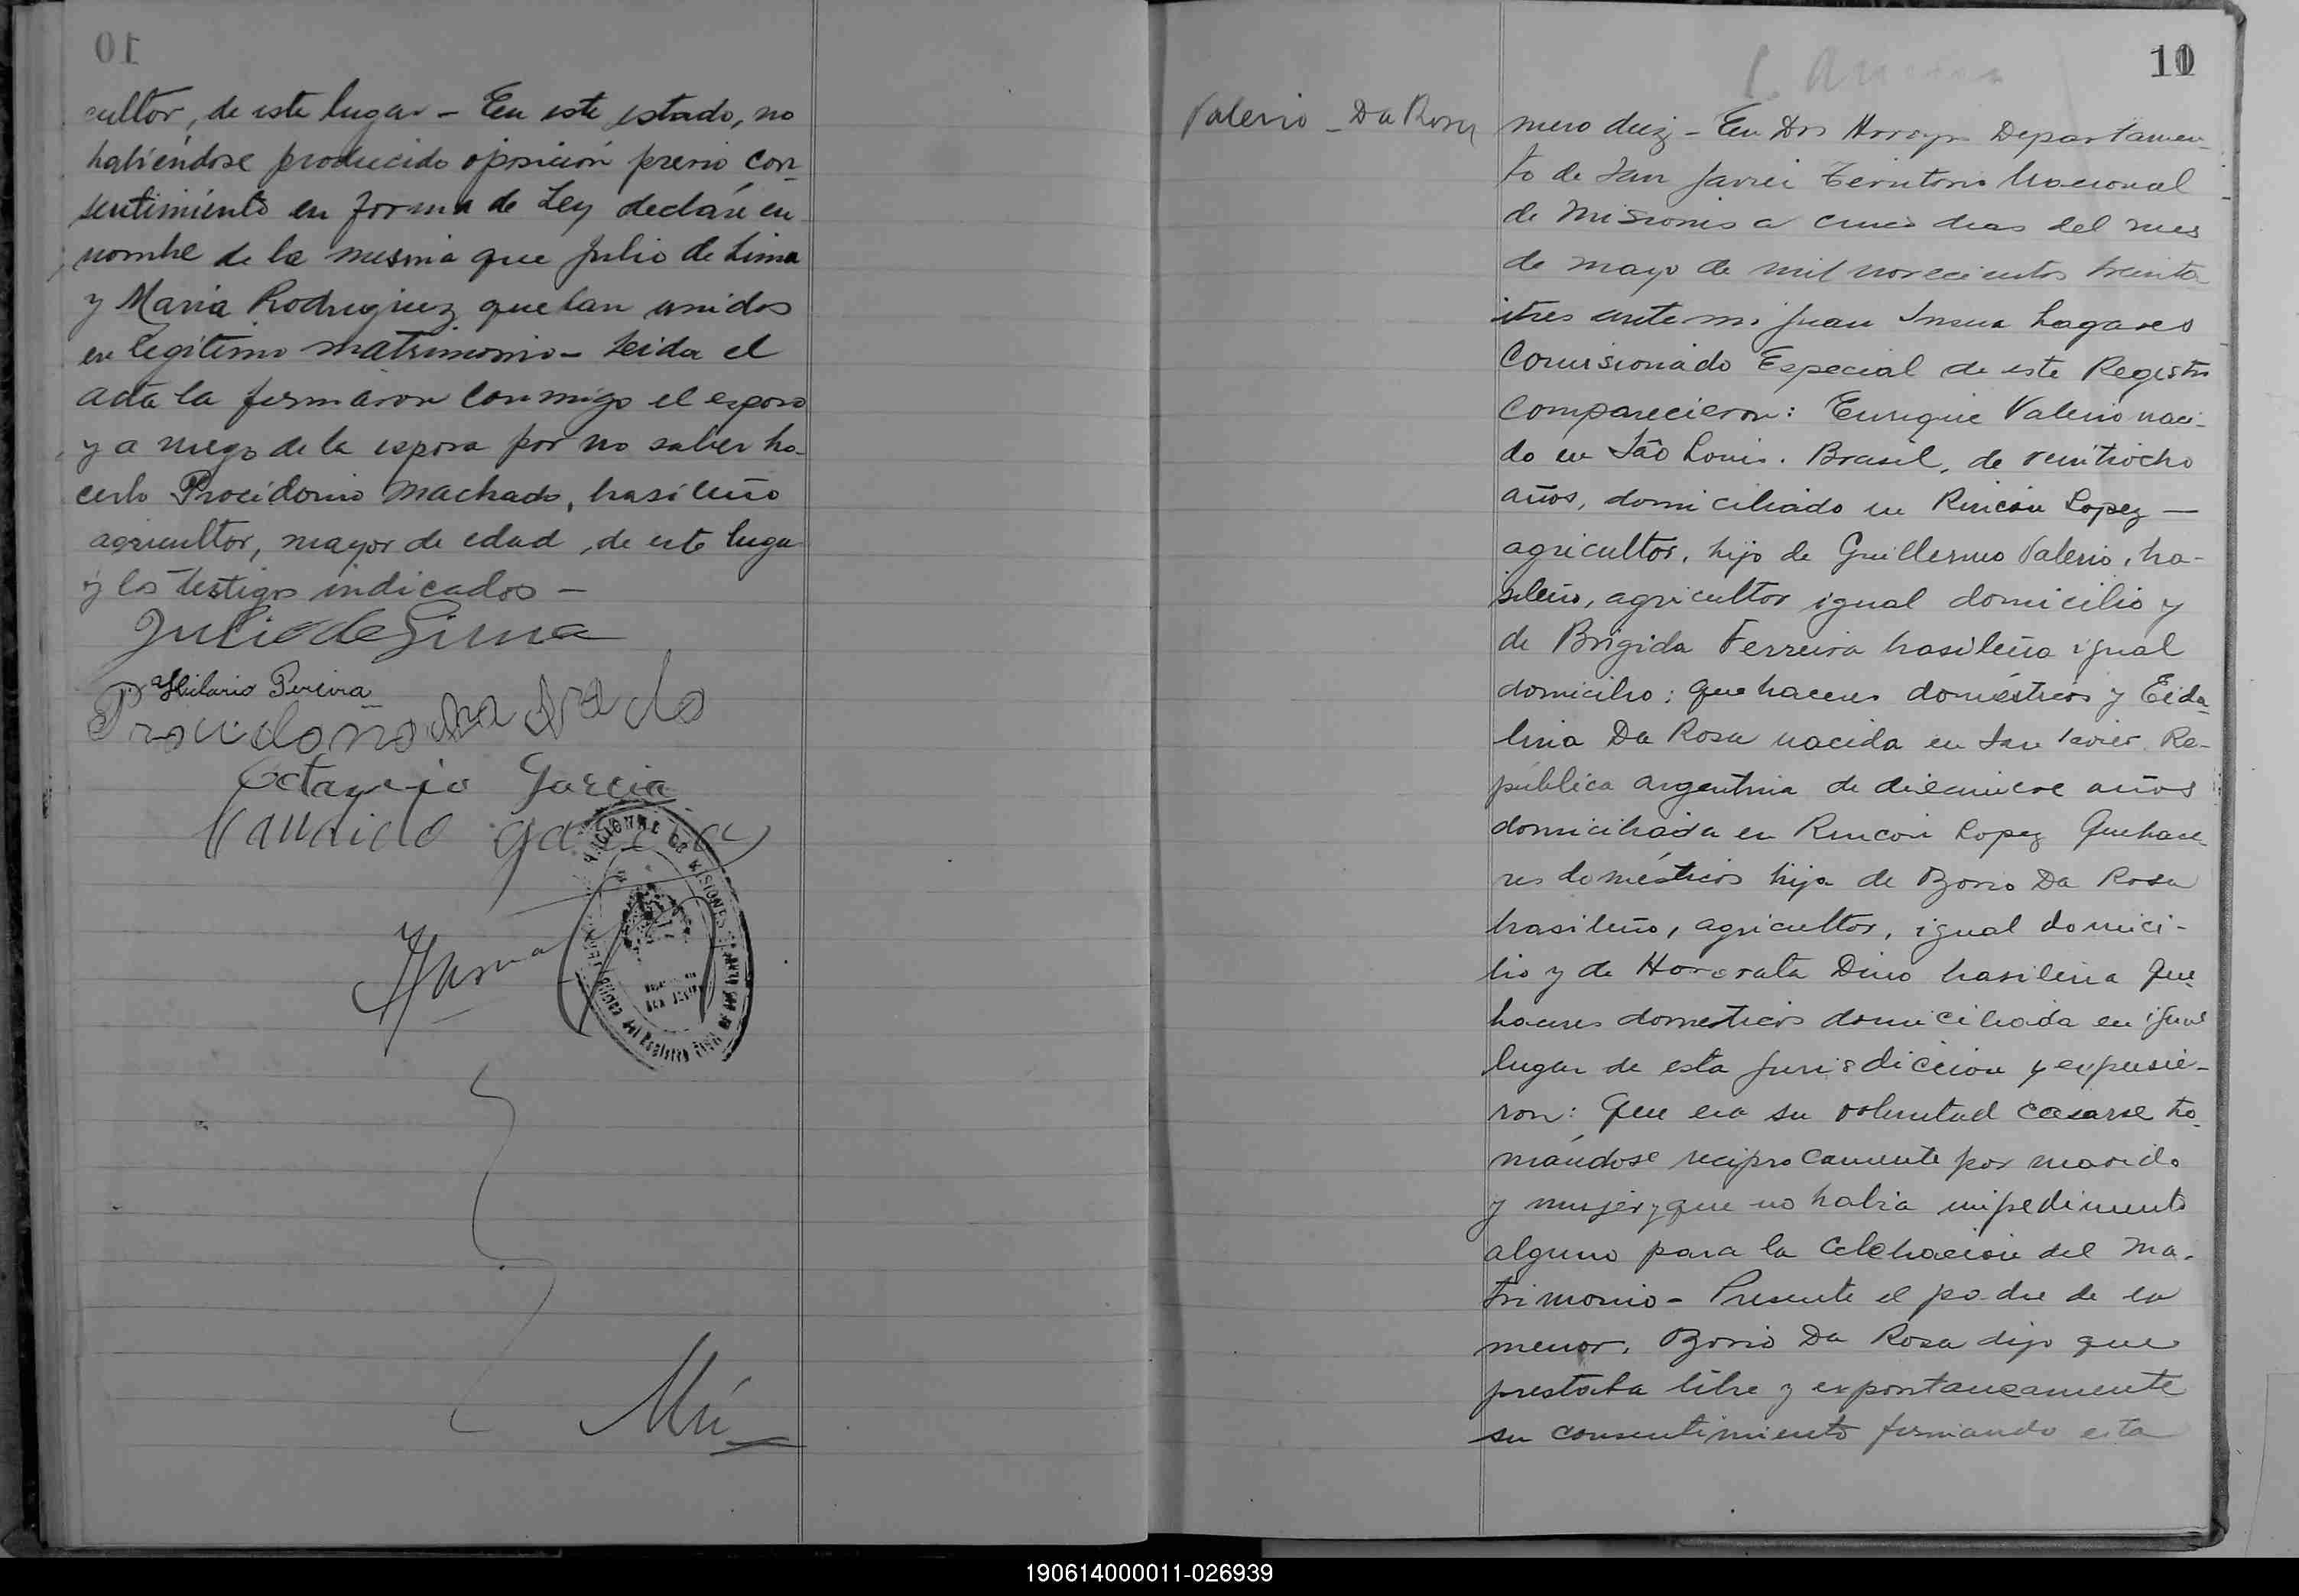 10
cultor, de este lugar - En este estado, no
habiéndose producido oposición previo con-
sentimiento en forma de Ley declaré en
nombre de la misma que Julio de Lima
y Maria Rodriguez quedan unidos
en legitimo matrimonio - Leida el
acta la firmaron conmigo el esposo
y a ruego de la esposa por no saber ha-
cerlo Procidonio Machado, brasileño
agricultor, mayor de edad, de este lugar
y los testigos indicados -
Julio de Lima
Hilario Pereira
Octavio Garcia
Garcia
Valerio - Da Rosa
10
mero diez - En Dos Arroyos Departamen-
to de San Javier Territorio Nacional
de Misiones a cinco dias del mes
de mayo de mil novecientos treinta
itres ante mi Juan Insua Lagares
Comisionado Especial de este Registro
comparecieron: Enrique Valerio naci-
do en São Louis. Brasil, de veintiocho
años, domiciliado en Rincón Lopez —
agricultor, hijo de Guillermo Valerio, bra-
sileño, agricultor igual domicilio y
de Brigida Ferreira brasileña igual
domicilio; quehaceres domésticos y
lina Da Rosa nacida en San Javier Re-
pública Argentina de diecinueve años
domiciliada en Rincon Lopez quehace-
res domésticos hija de Da Rosa
brasileño, agricultor, igual domici-
lio y de Honorata Dino brasileña que-
haceres domesticos domiciliada en igual
lugar de esta jurisdiccion y expusie-
ron: Que era su voluntad casarse to-
mándose reciprocamente por marido
y mujer y que no habia impedimento
alguno para la celebracion del ma-
trimonio - Presente el padre de la
menor, Da Rosa dijo que
prestaba libre y expontaneamente
su consentimiento firmando esta
190614000011-026939